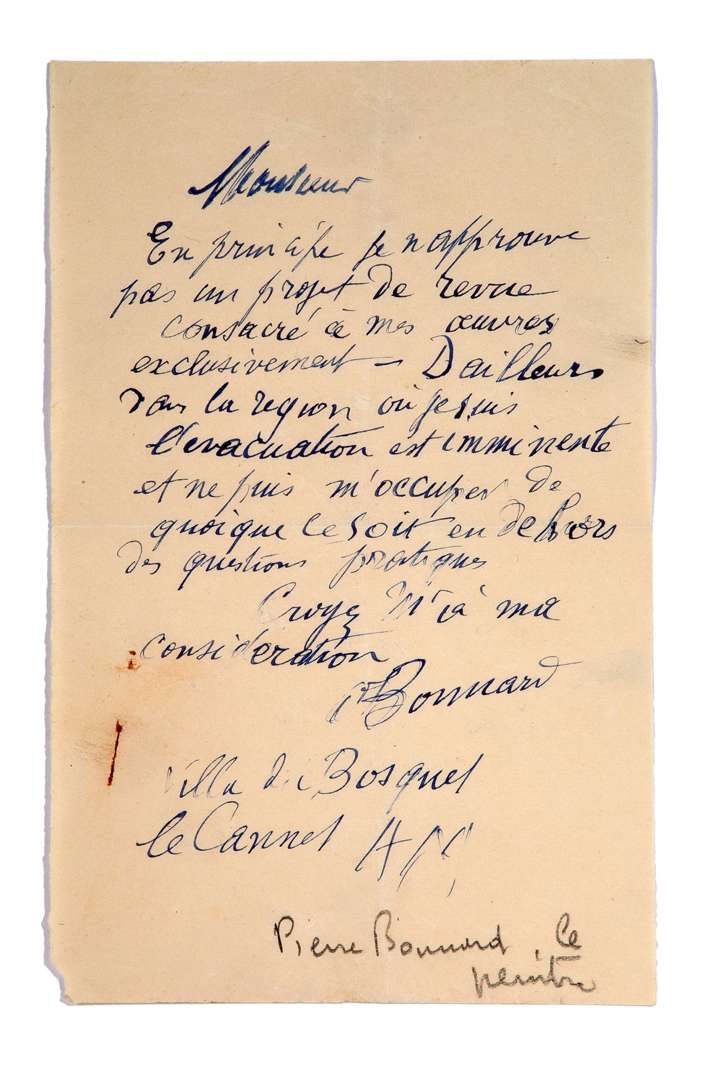 Monsieur
En principe je n'approuve
pas un projet de revue
consacré à mes œuvres
exclusivement – D'ailleurs
dans la région où je suis
l'evacuation est imminente
et ne puis m'occuper de
quoique ce soit en dehors
des questions pratiques
Croyez M' à ma
consideration
P Bonnard
Villa du Bosquet
le Cannet AM
Pierre Bonnard, le
peintre